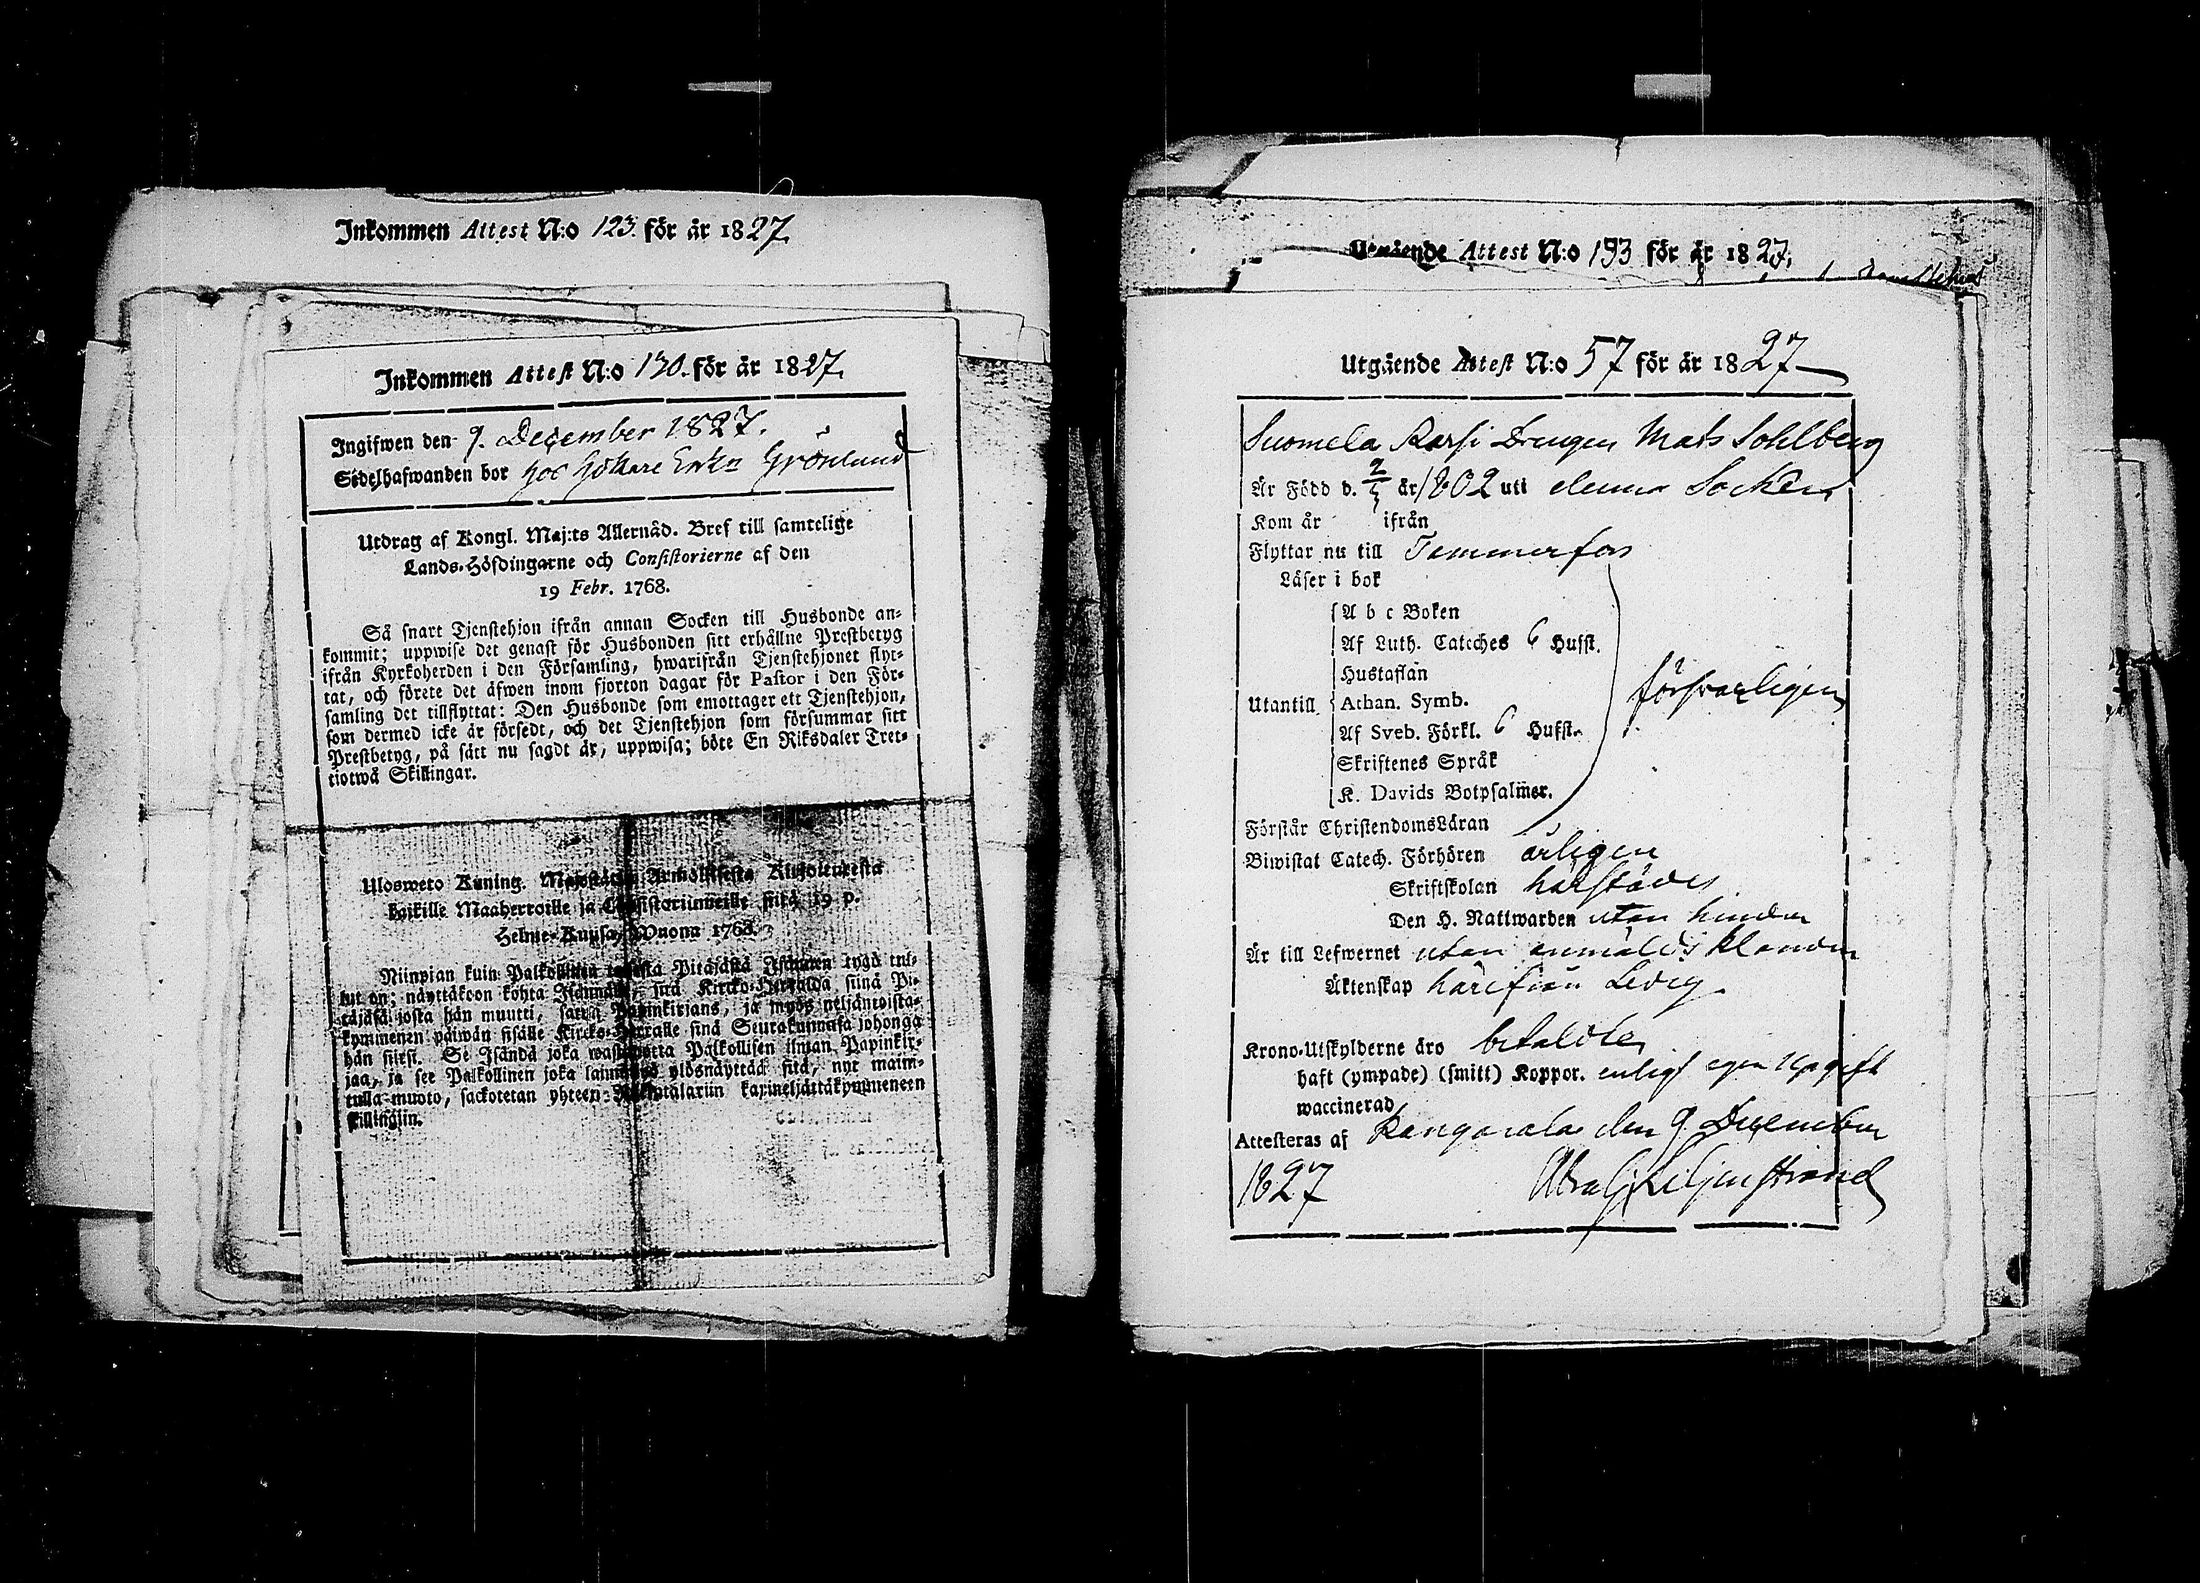 Inkommen Attest N:o 123. för år 1827.
Inkommen Attest N:o 130. för år 1827.
Ingifwen den 9. December 1827.
Sedelhafwanden bor hos Hökare Grönlund
Utdrag af Kongl. Maj:ts Allernåd. Bref till samtelige
Lands-Höfdingarne och Consistorierne af den
19 Febr. 1768.
Så snart Tjenstehjon ifrån annan Socken till Husbonde an-
kommit; uppwise det genast för Husbonden sitt erhållne Prestbetyg
ifrån Kyrkoherden i den Församling, hwarifrån Tjenstehjonet flyt-
tat, och förete det äfwen inom fjorton dagar för Pastor i den För-
samling det tillflyttat: Den Husbonde som emottager ett Tjenstehjon,
som dermed icke är försedt, och det Tjenstehjon som försummar sitt
Prestbetyg, på sätt nu sagdt är, uppwisa; böte En Riksdaler Tret-
tiotwå Skillingar.
Ulosweto Kuning. Majestätin Armollisesta Kirjoituxesta
kaikille Maaherroille ja Consistoriumeille siitä 19 p.
Helme-Kuusa, Wuonna 1768.
Niinpian kuin Palkollinen toisesta Pitäjästä Isännen tygö tul-
lut on; näyttäköön kohta Isännälle, sitä Kircko-Herralda siinä Pi-
täjäsä josta hän muutti, saatu Papinkirjans, ja myös neljäntoista-
kymmenen päiwän sisälle Kircko-Herralle siinä Seurakunnasa johonga
hän siirsi. Se Isändä joka wastanotta Palkollisen ilman Papinkir-
jaa, ja se Palkollinen joka laiminlyö ylösnäyttää sitä, nyt maini-
tulla muoto, sackotetan yhteen Rikintalariin kaxineljättäkymmeneen
skillingiin.
Utgående Attest N:o 193 för år 1827.
Utgående Attest N:o 57 för år 1827
Suomela Karsi Drengen Mats Sohlberg
Är Född d. 2/5 år 1802 uti denna Socken
Kom år ifrån
Flyttar nu till Tammerfors
Läser i bok
A b c Boken
Af Luth. Cateches 6 Hufst.
Hustaflan
Utantill Athan. Symb.
Af Sveb. Förkl. 6 Hufst.
Skriftenes Språk
K. Davids Botpsalmer.
försvarligen
Förstår ChristendomsLäran
Biwistat Catech. Förhören årligen
Skriftskolan härstädes
Den H. Nattwarden utan hinder
Är till Lefwernet utan anmäldt klander
Äktenskap härifrån Ledig
Krono-Utskylderne äro betaldte
haft (ympade) (smitt) Koppor. enligt egen Upgift
waccinerad
Attesteras af Kangasala den 9. December
1827 Abr. G. Liljenstrand